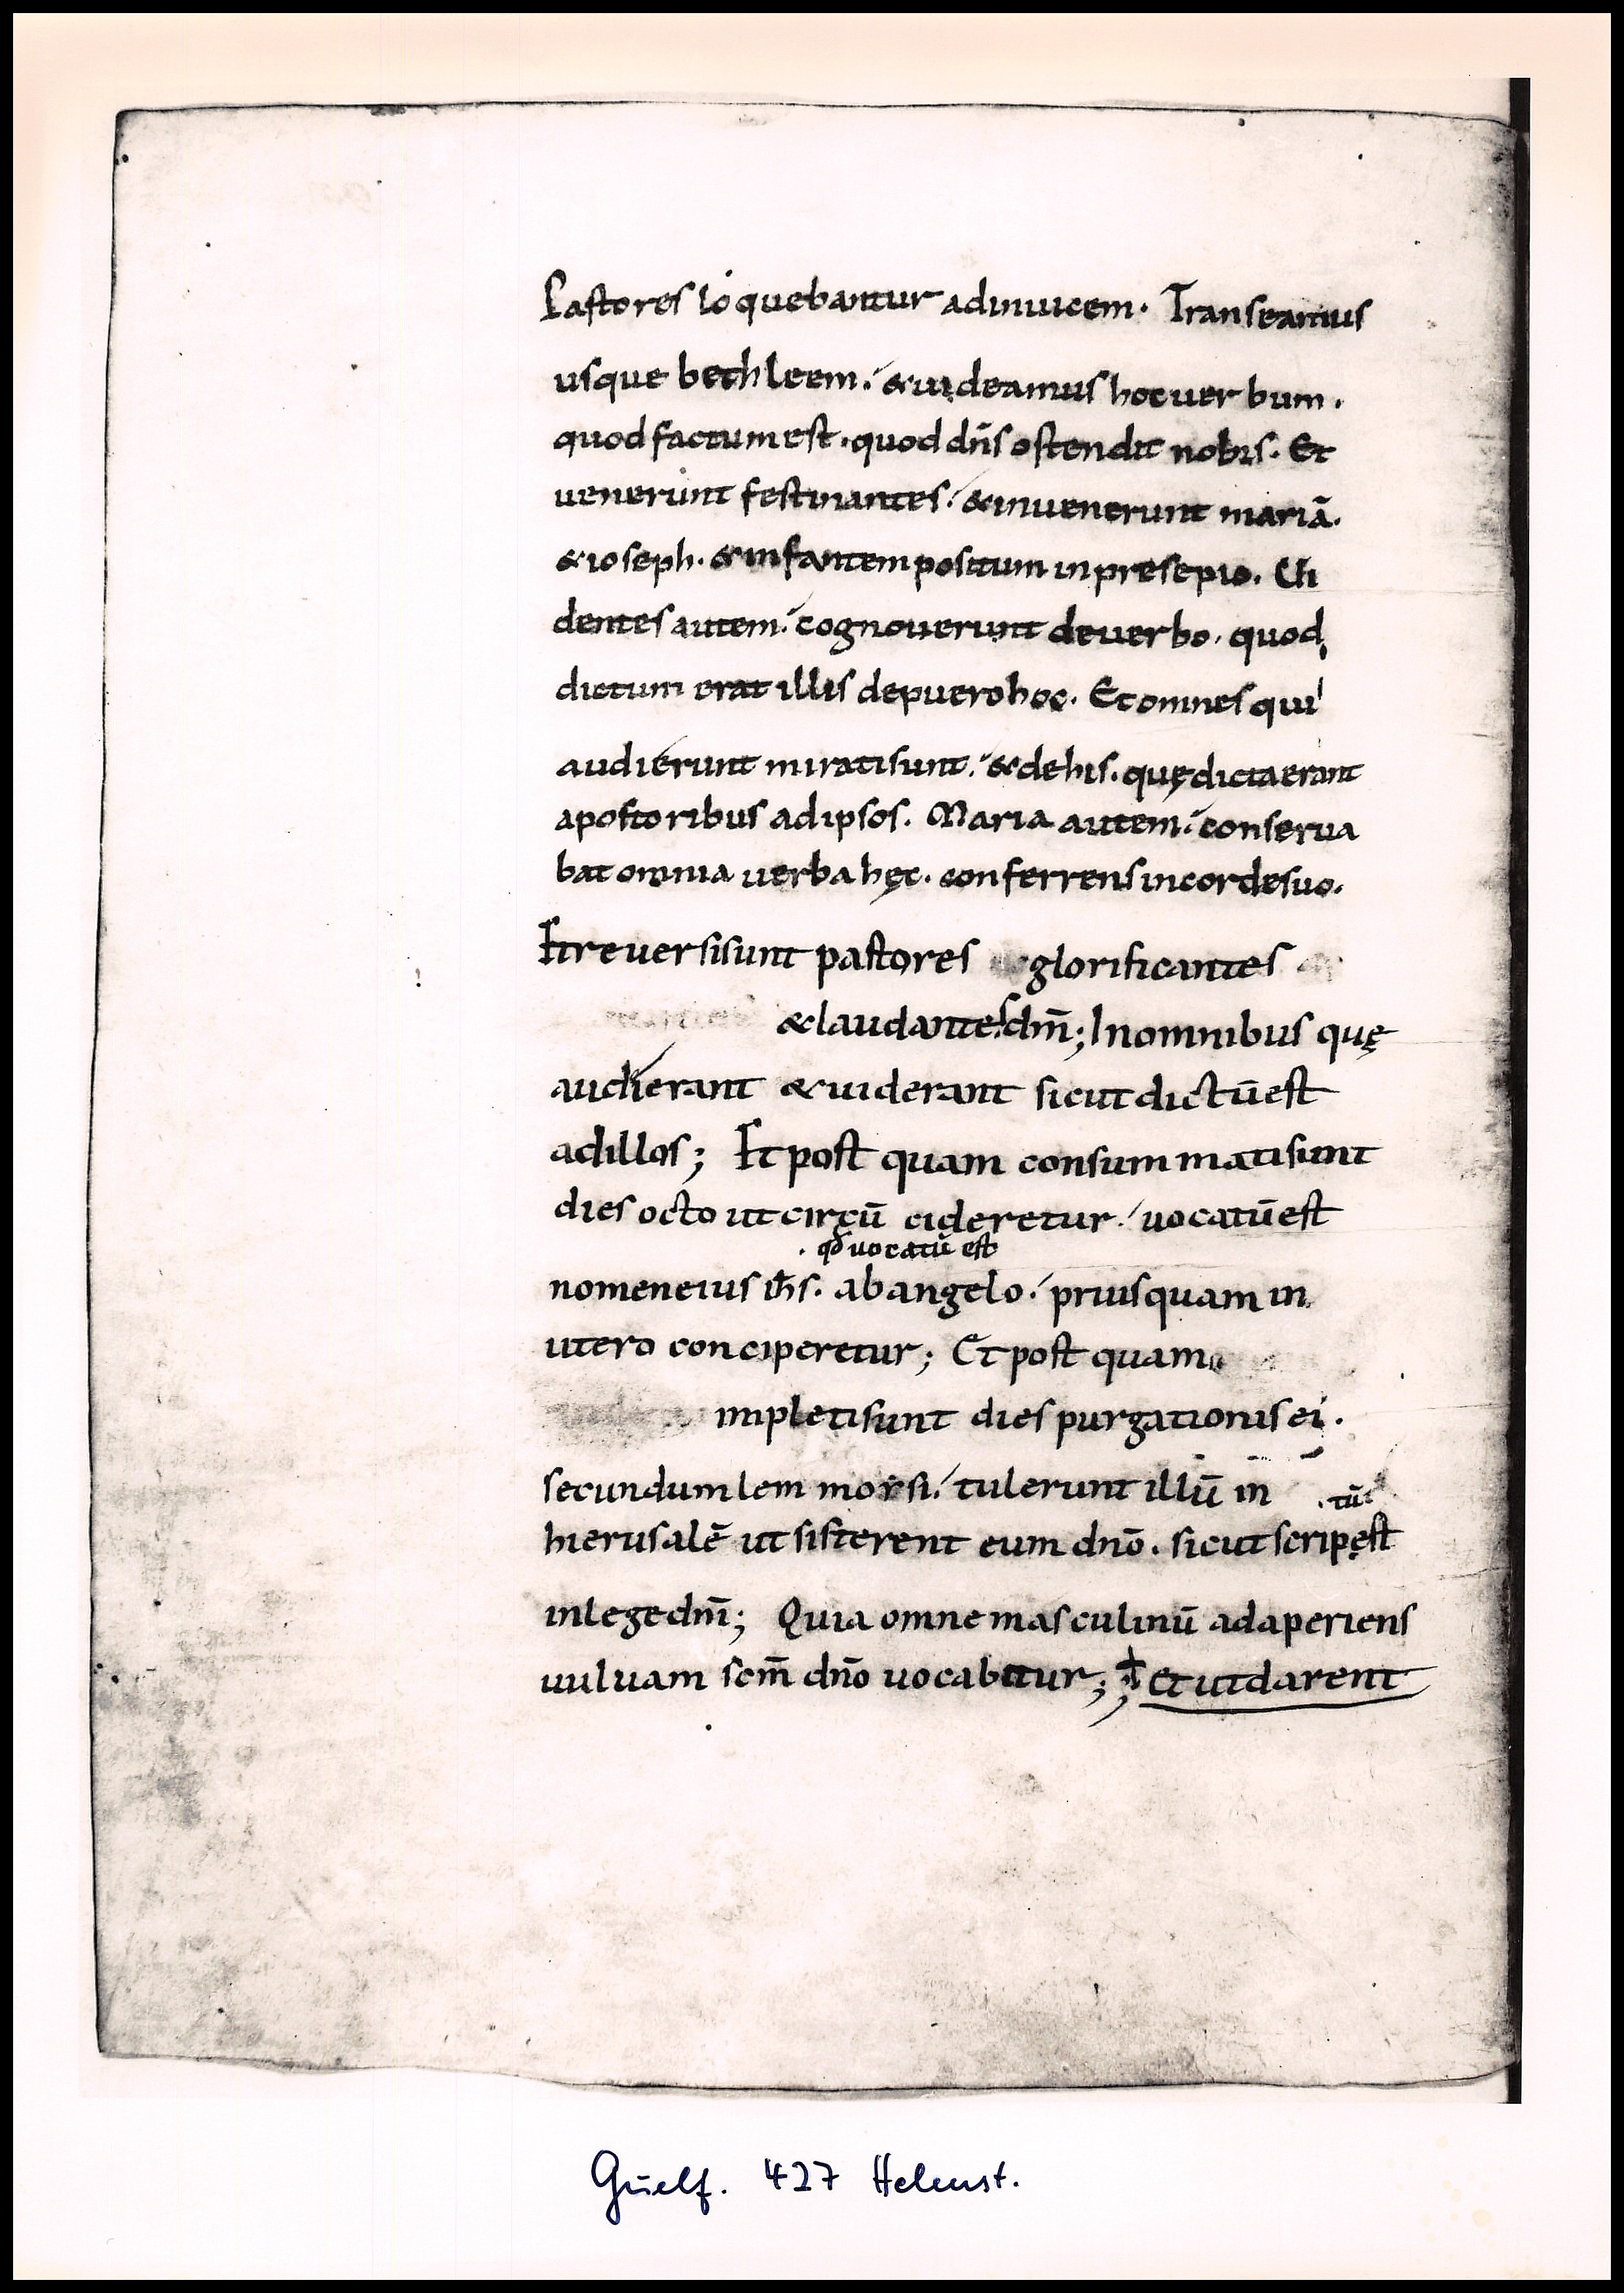 Pastores loquebantur adinuicem. Transeamus
usque bethleem. & uideamus hoc uerbum.
quod factum est. quod dn̄s ostendit nobis. Et
uenerunt festinantes. & inuenerunt mariā.
& ioseph. & infantem positum in presepio. Ui
dentes autem. cognouerunt de uerbo. quod
dictum erat illis de puero hoc. Et omnes qui
audierunt mirati sunt. & de his. quę dicta erant
apostoribus ad ipsos. Maria autem. conserua
bat omnia uerba hęc. conferrens in corde suo.
Et reuersi sunt pastores glorificantes
& laudantes dm̄; In omnibus quę
audierant & uiderant sicut dictū est
ad illos; Et post quam consummati sunt
dies octo ut circū cideretur. uocatū est
. qđ uocatū est
nomen eius ih̄s. ab angelo. priusquam in
utero conciperetur; Et post quam
impleti sunt dies purgationis ei.
secundum lem morsi. tulerunt illū in
. tū
hierusalē ut sisterent eum dn̄o. sicut scrip est
in lege dn̄i; Quia omne masculinū adaperiens
uuluam scm̄ dn̄o uocabitur; Et ut darent
Guelf. 427 Helmst.